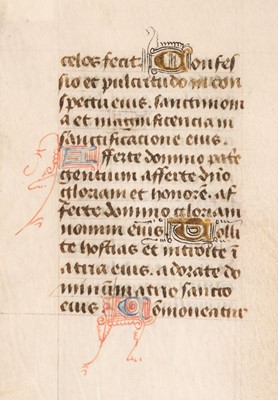 celos fecit. Confes
sio et pulcritudo in con
spectu eius. sanctimoni
a et magnificencia in
sanctificatione eius.
Afferte domino patrie
gentium afferte dño
gloriam et honorē. af
ferte domino gloriam
nomini eius. Tolli
te hostias et introite ī
atria eius. adorate do
minum in atrio sancto
eius. Commoueatur